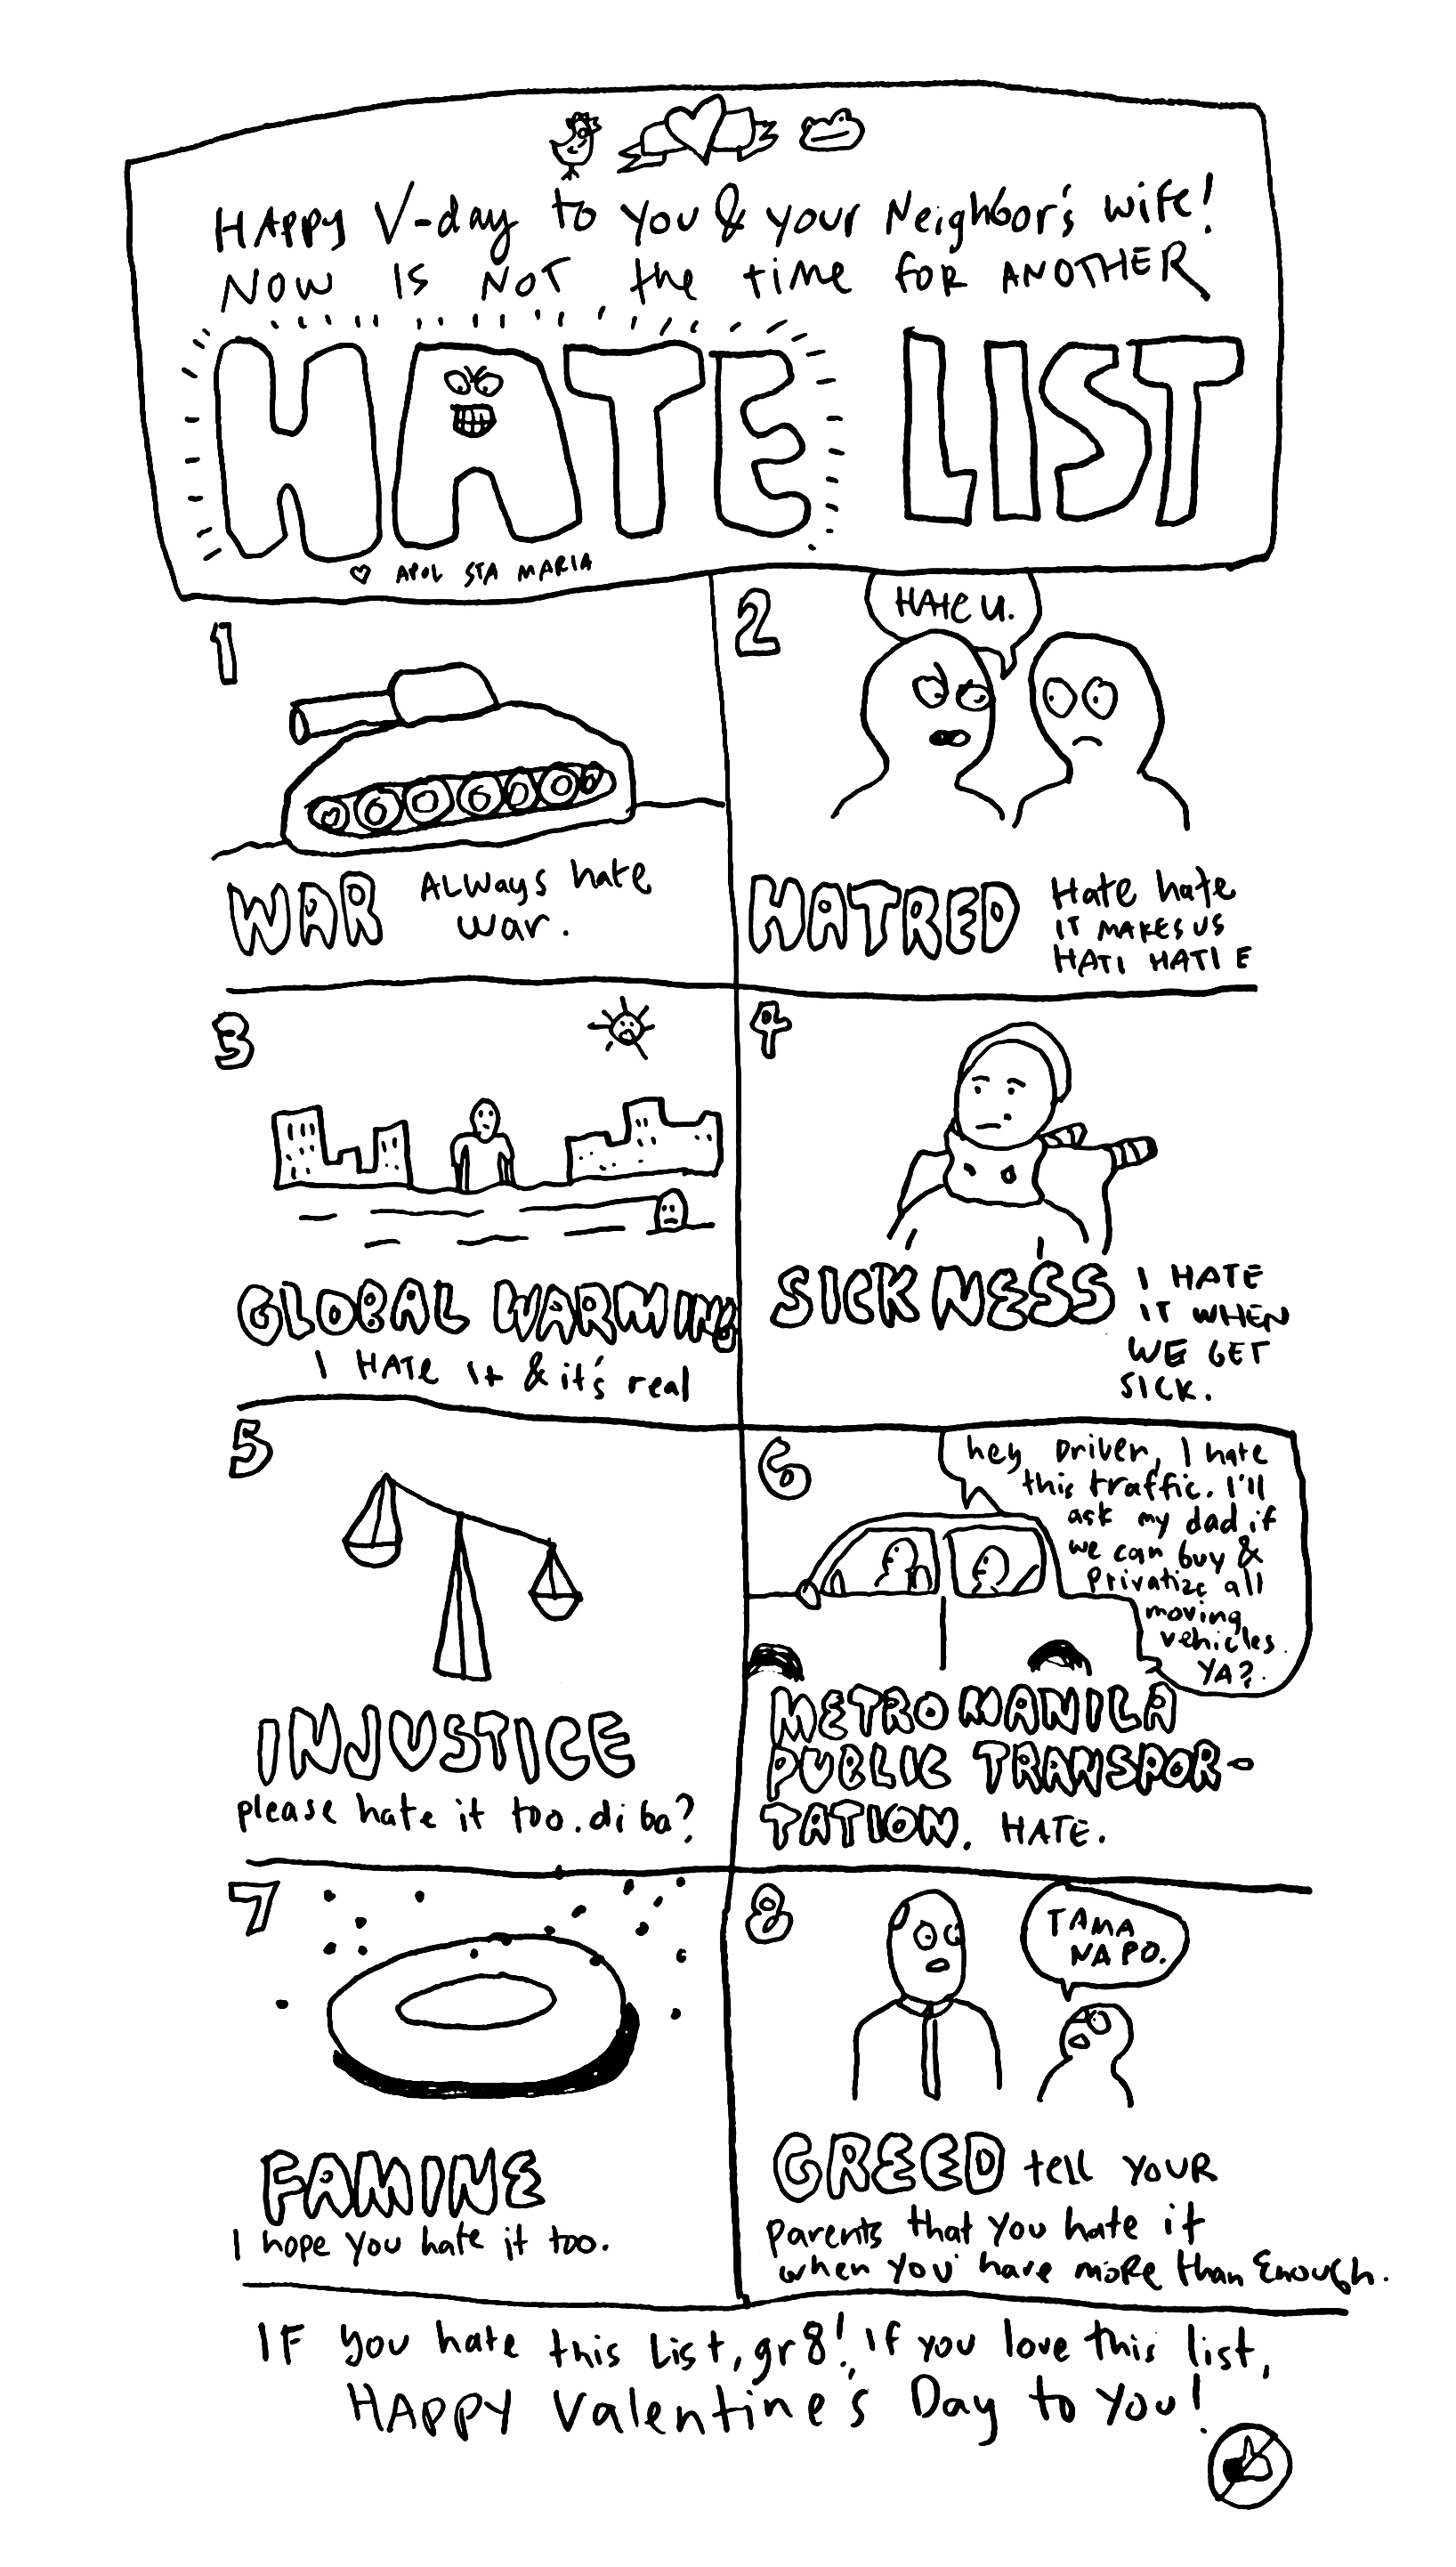 HAPPY V-day to you & your Neighbor's wife!
NOW IS NOT the time FOR ANOTHER
HATE LIST
APOL STA MARIA
1
WAR ALWAYS hate
war.
2
HATE U.
HATRED Hate hate
IT MAKES US
HATI HATI E
3
GLOBAL WARMING
I HATE It & it's real
4
SICKNESS I HATE
IT WHEN
WE GET
SICK.
5
INJUSTICE
please hate it too. di ba?
6
hey Driver, I hate
this traffic. I'll
ask my dad if
we can buy &
Privatize all
moving
vehicles
YA?
METRO MANILA
PUBLIC TRANSPOR-
TATION. HATE.
7
FAMINE
I hope you hate it too.
8
TAMA
NA PO.
GREED tell YOUR
parents that you hate it
when you have more than Enough.
IF you hate this List, gr8! If you love this list,
HAPPY Valentine's Day to You!